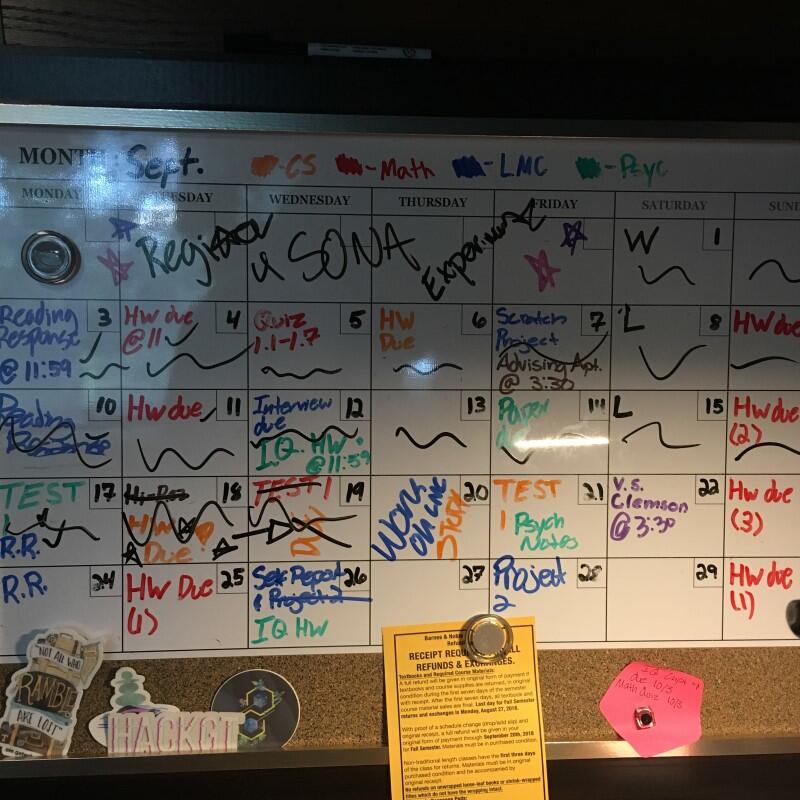 MONTH: Sept.
-CS
-Math
-LMC
-Psyc
MONDAY
WEDNESDAY
THURSDAY
FRIDAY
SATURDAY
Register
SONA
W
1
Reading
Response
@ 11:59
3
Hw due
@ 11
4
Quiz
1.1-1.7
5
HW
Due
6
Scratch
Project
Advising Apt.
@ 3:30
7
L
8
Hw due
Reading
Response
10
Hw due
11
Interview
due
I.Q. HW
@ 11:59
12
13
Paper
due
14
L
15
Hw due
(2)
TEST
R.R.
17
Due!
18
TEST 1
19
WORK
ON LMC
20
TEST
1 Psych
Notes
21
V.S.
Clemson
@ 3:30
22
Hw due
(3)
R.R.
24
HW Due
(1)
25
Self Report
& Project 2
IQ HW
26
27
Project
2
28
29
Hw due
(1)
NOT ALL WHO
RAMBLE
ARE LOST
HACKGT
Barnes & Noble
RECEIPT
REFUNDS & EXCHANGES.
Textbooks and Required Course Materials:
A full refund will be given in original form of payment if
textbooks and course supplies are returned, in original
condition during the first seven days of the semester
with receipt. After the first seven days, all textbook and
course material sales are final. Last day for Fall Semester
returns and exchanges is Monday, August 27, 2018.
With proof of a schedule change (drop/add slip) and
original receipt, a full refund will be given in original
form of payment through September 20th, 2018
for Fall Semester. Materials must be in purchased condition.
Non-traditional length classes have the first three days
of the class for returns. Materials must be in original
purchased condition and be accompanied by
original receipt.
No refunds on unwrapped loose-leaf books or shrink-wrapped
titles which do not have the wrapping intact.
due 10/3
Math Quiz 10/3